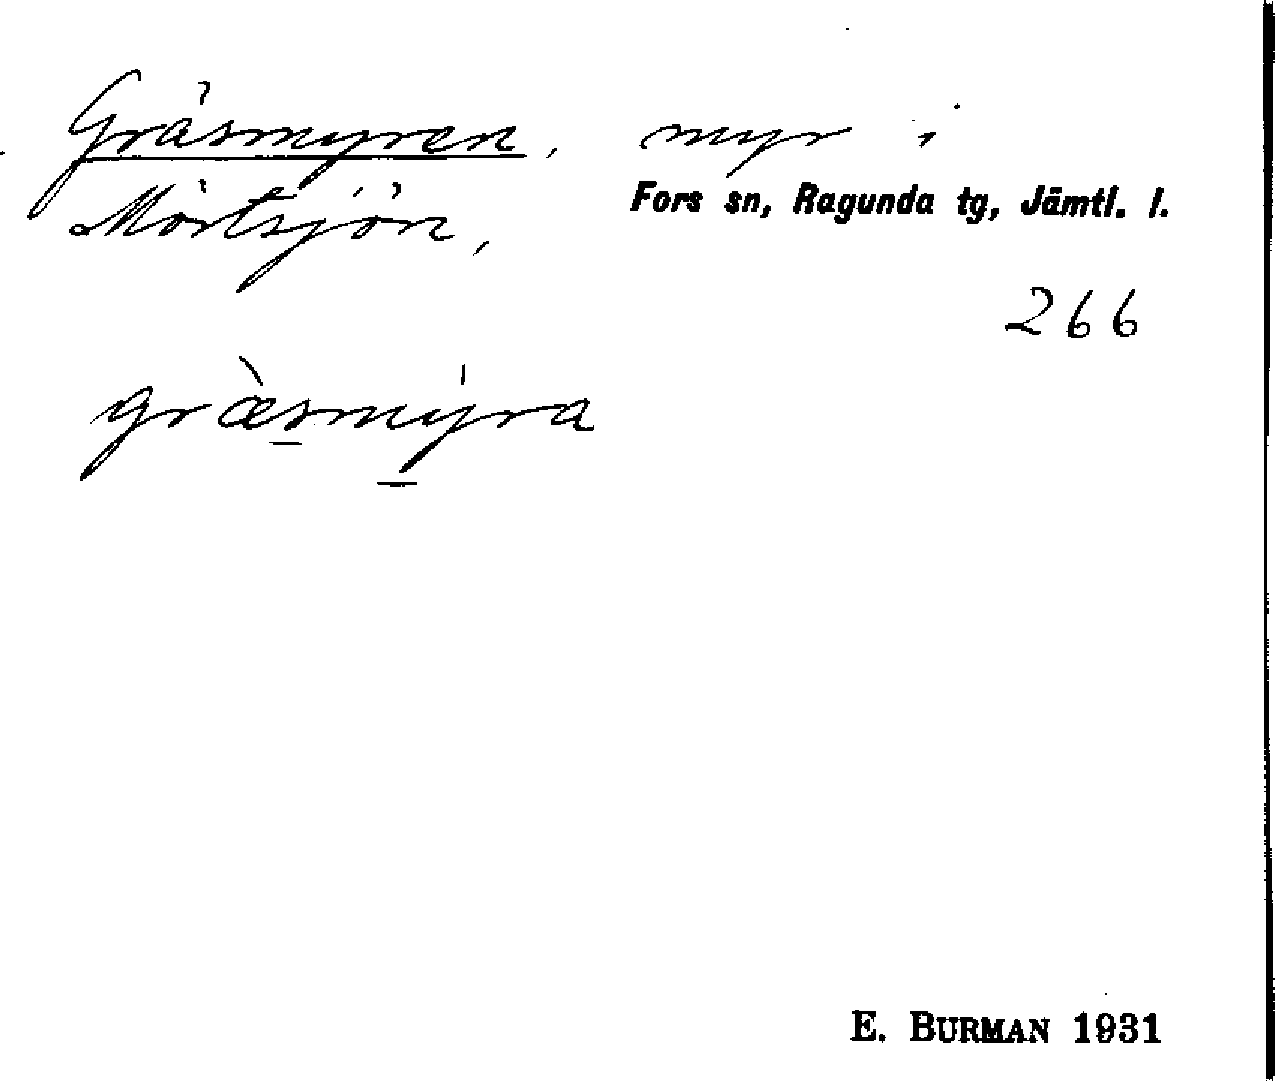 Gräsmyren, myr i
Mörtsjön, Fors sn, Ragunda tg, Jämtl. l.
266
græ̀smýra
E. BURMAN 1931